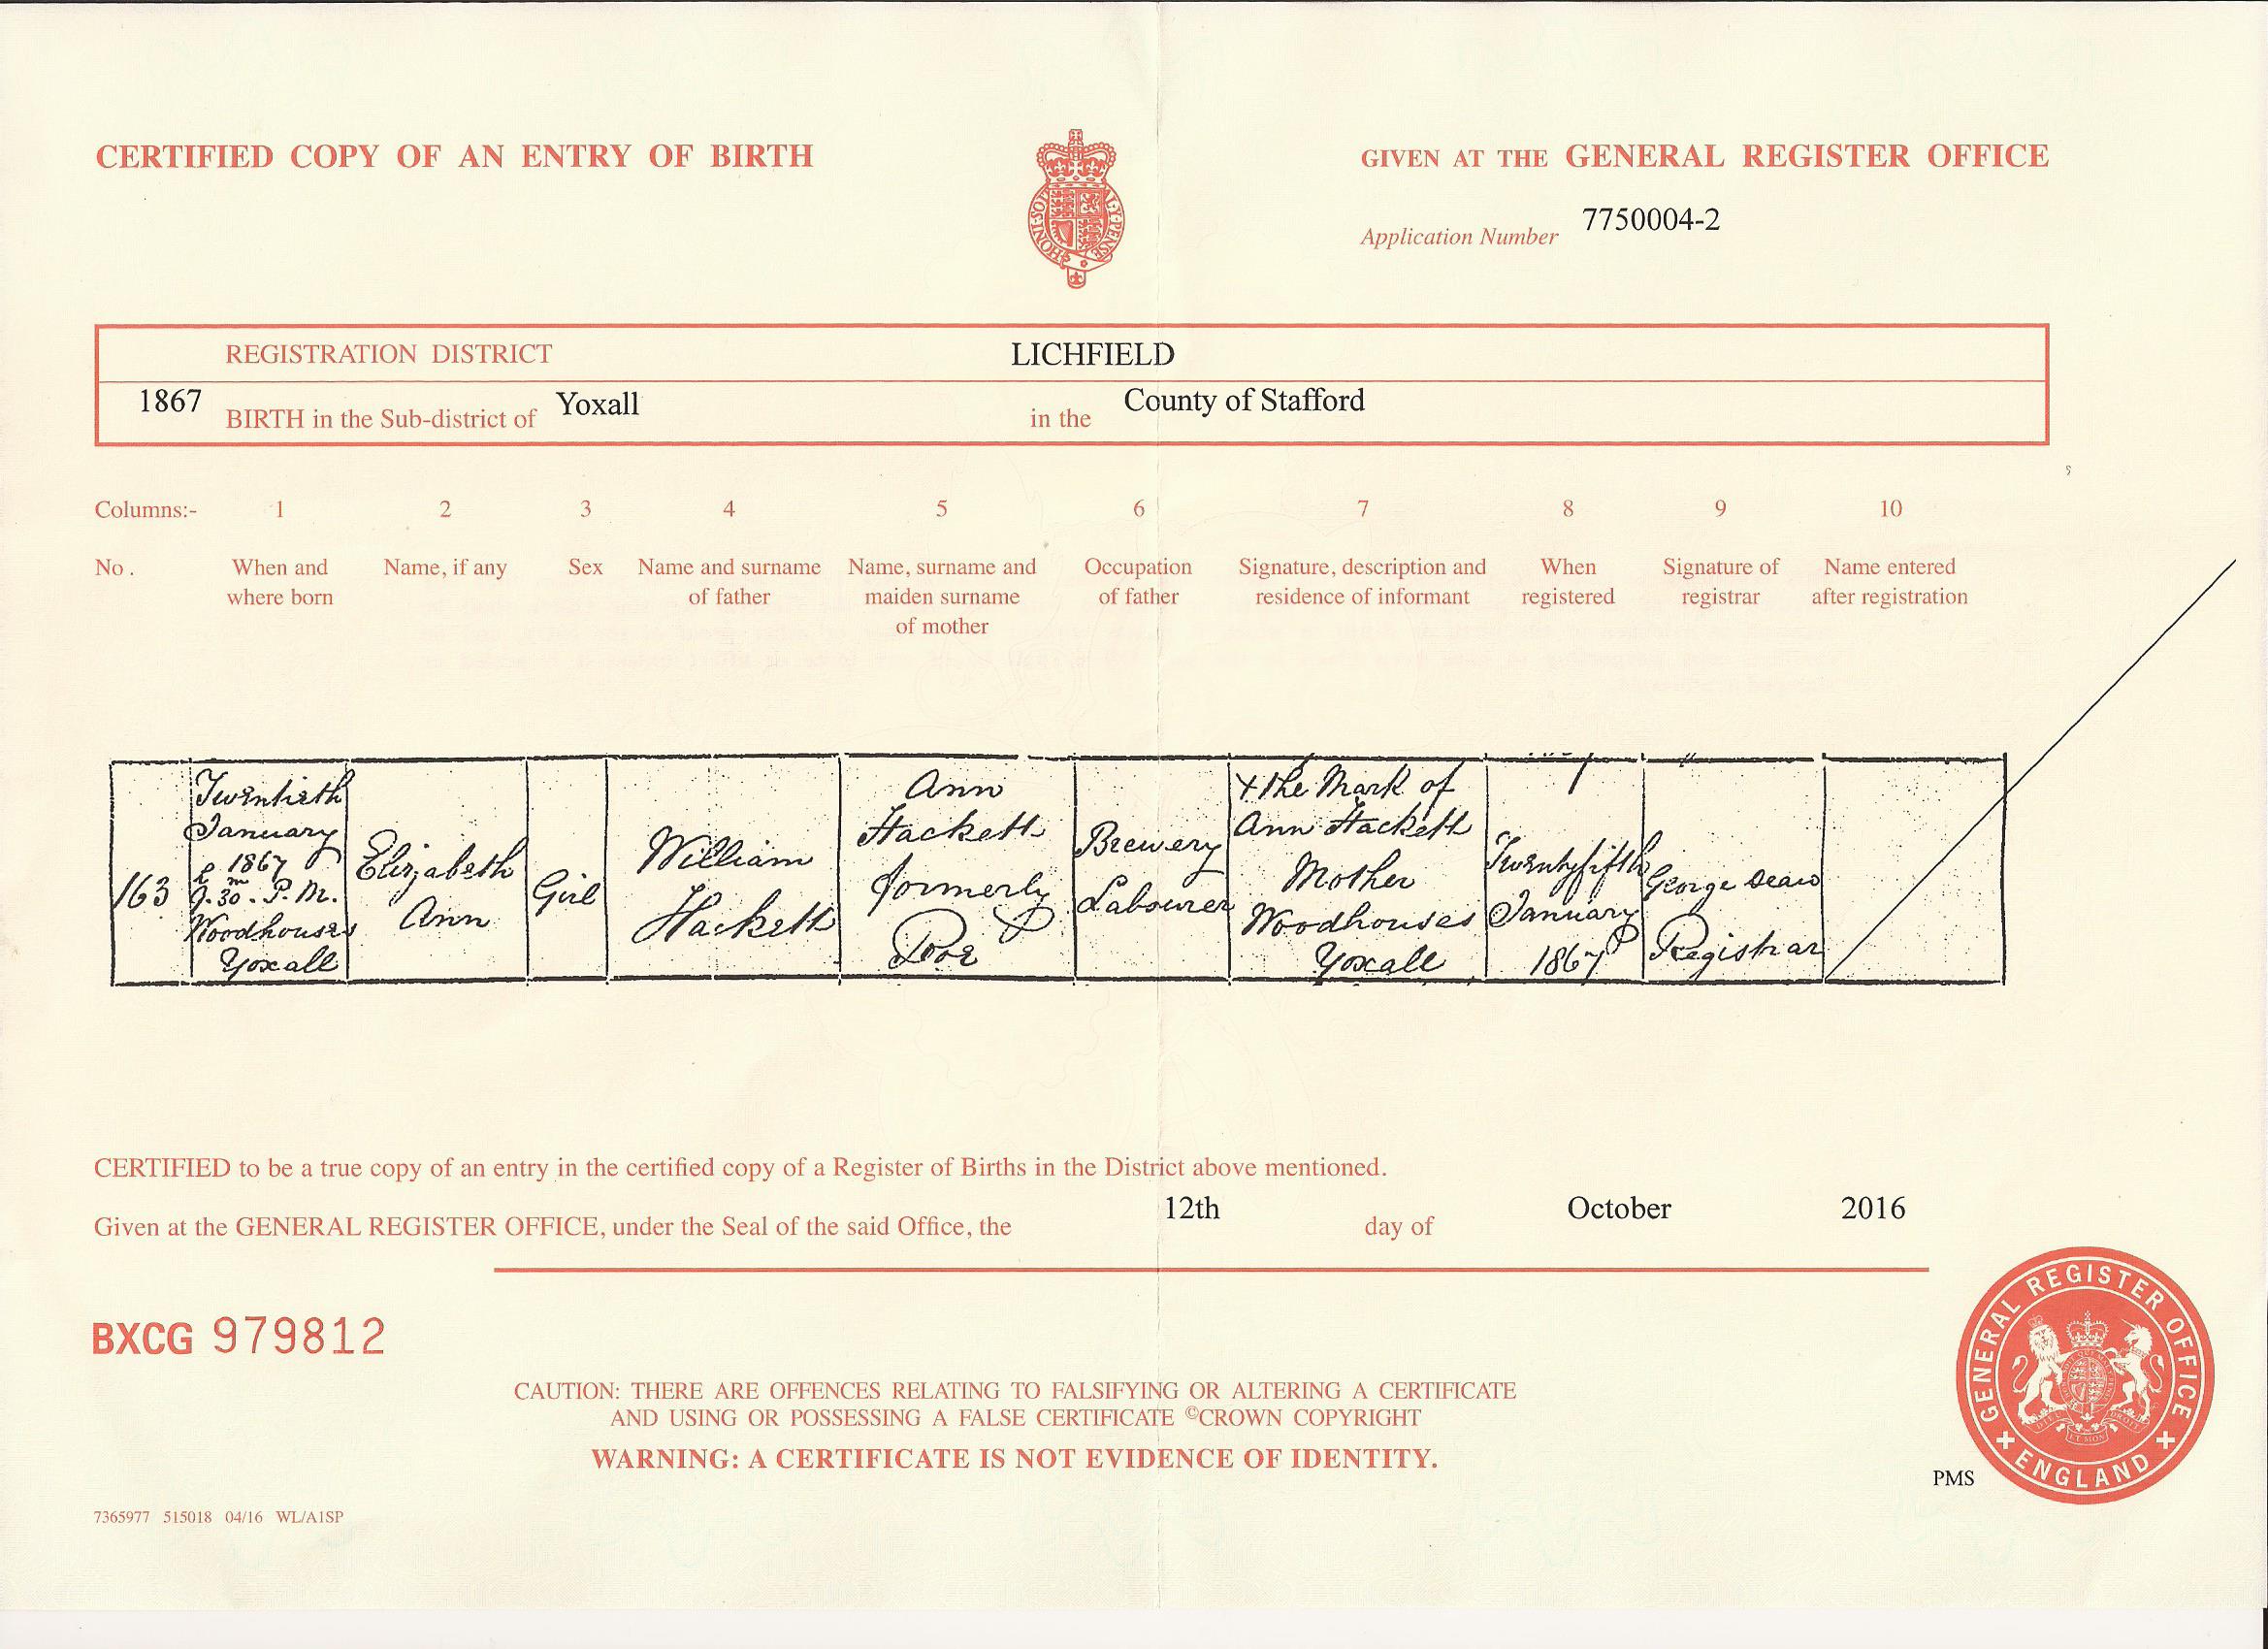 CERTIFIED COPY OF AN ENTRY OF BIRTH
GIVEN AT THE GENERAL REGISTER OFFICE
HONI·SOIT
AL·Y·PENSE
Application Number 7750004-2
REGISTRATION DISTRICT LICHFIELD
1867 BIRTH in the Sub-district of Yoxall in the County of Stafford
Columns:- 1 2 3 4 5 6 7 8 9 10
No. When and where born
Name, if any
Sex
Name and surname of father
Name, surname and maiden surname of mother
Occupation of father
Signature, description and residence of informant
When registered
Signature of registrar
Name entered after registration
163
Twentieth
January
1867
h m
9.30. P.M.
Woodhouses
Yoxall
Elizabeth
Ann
Girl
William
Hackett
Ann
Hackett
formerly
Brewery
Labourer
X The Mark of
Ann Hackett
Mother
Woodhouses
Yoxall
Twentyfifth
January
1867
George
Registrar
CERTIFIED to be a true copy of an entry in the certified copy of a Register of Births in the District above mentioned.
Given at the GENERAL REGISTER OFFICE, under the Seal of the said Office, the 12th day of October 2016
BXCG 979812
CAUTION: THERE ARE OFFENCES RELATING TO FALSIFYING OR ALTERING A CERTIFICATE
AND USING OR POSSESSING A FALSE CERTIFICATE ©CROWN COPYRIGHT
WARNING: A CERTIFICATE IS NOT EVIDENCE OF IDENTITY.
GENERAL REGISTER OFFICE
ENGLAND
PMS
7365977 515018 04/16 WL/A1SP